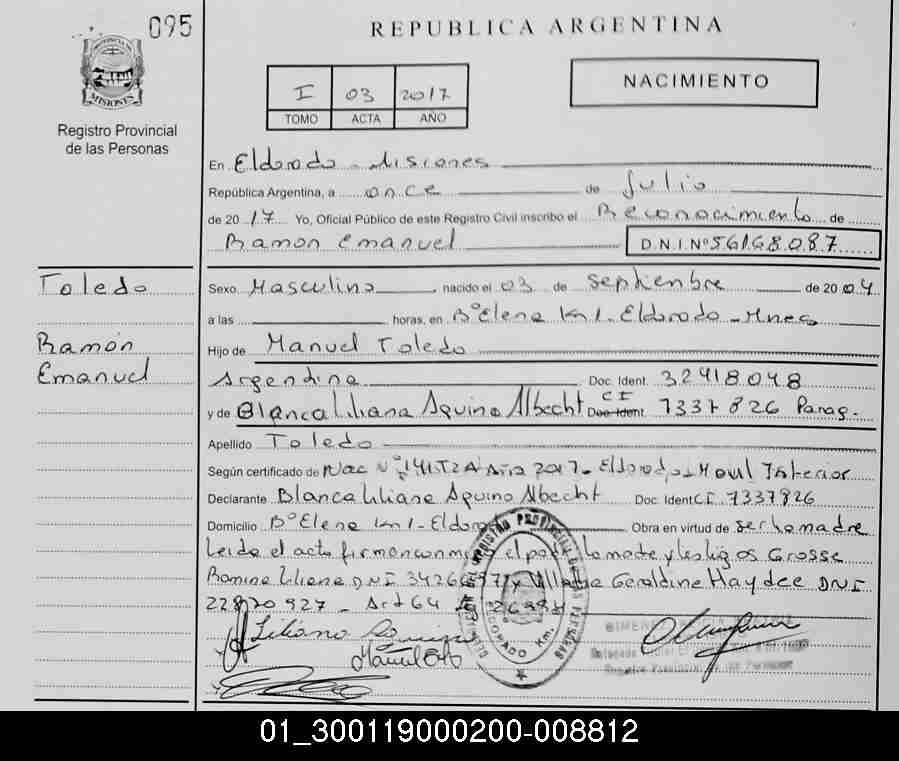 095
REPUBLICA ARGENTINA
PROVINCIA DE
MISIONES
Registro Provincial
de las Personas
I 03 2017
TOMO ACTA AÑO
NACIMIENTO
En Eldorado - Misiones
República Argentina, a once de Julio
de 2017 Yo, Oficial Público de este Registro Civil inscribo el Reconocimiento de
Ramón Emanuel D.N.I Nº 56168.087
Toledo
Ramón
Emanuel
Sexo Masculino nacido el 03 de Septienbre de 2004
a las horas, en Bº Elena Km 1 - Eldorado - Mnes
Hijo de Manuel Toledo
Argentina Doc. Ident. 32418048
y de Blanca Liliana Aquino Albecht CI Doc. Ident 7337826 Parag.
Apellido Toledo
Según certificado de Nac Nº Año 2017 - Eldorado - Interior
Declarante Blanca Liliana Aquino Albecht Doc. Ident CI 7337826
Domicilio Bº Elena Km 1 - Eldorado Obra en virtud de ser la madre
Leida el acta firman el padre la madre y testigos Grosse
Romina Liliana DNI y Geraldine Haydee DNI
22870927 - Art 64
Liliana Aquino
DELEGACION DEL REGISTRO PROVINCIAL DE LAS PERSONAS
ELDORADO Km.
Registro Provincial de las Personas
01_300119000200-008812